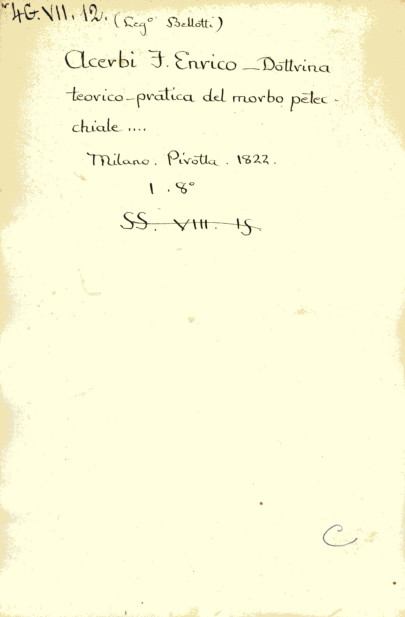 4G.VII.12. (Leg° Bellotti)
Acerbi F. Enrico _ Dottrina
teorico-pratica del morbo petec-
chiale ....
Milano. Pirotta. 1822.
1. 8°
SS. VIII. 15
C